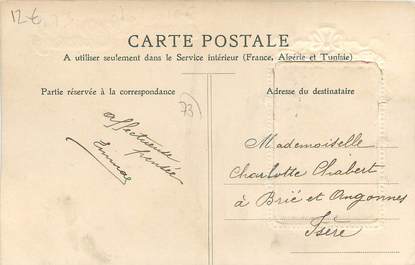 12€
CARTE POSTALE
A utiliser seulement dans le Service intérieur (France, Algérie et Tunisie)
Partie réservée à la correspondance
73
affectueuse
pensée
Adresse du destinataire
Mademoiselle
Charlotte Chabert
à Brié et Angonnes
Isère